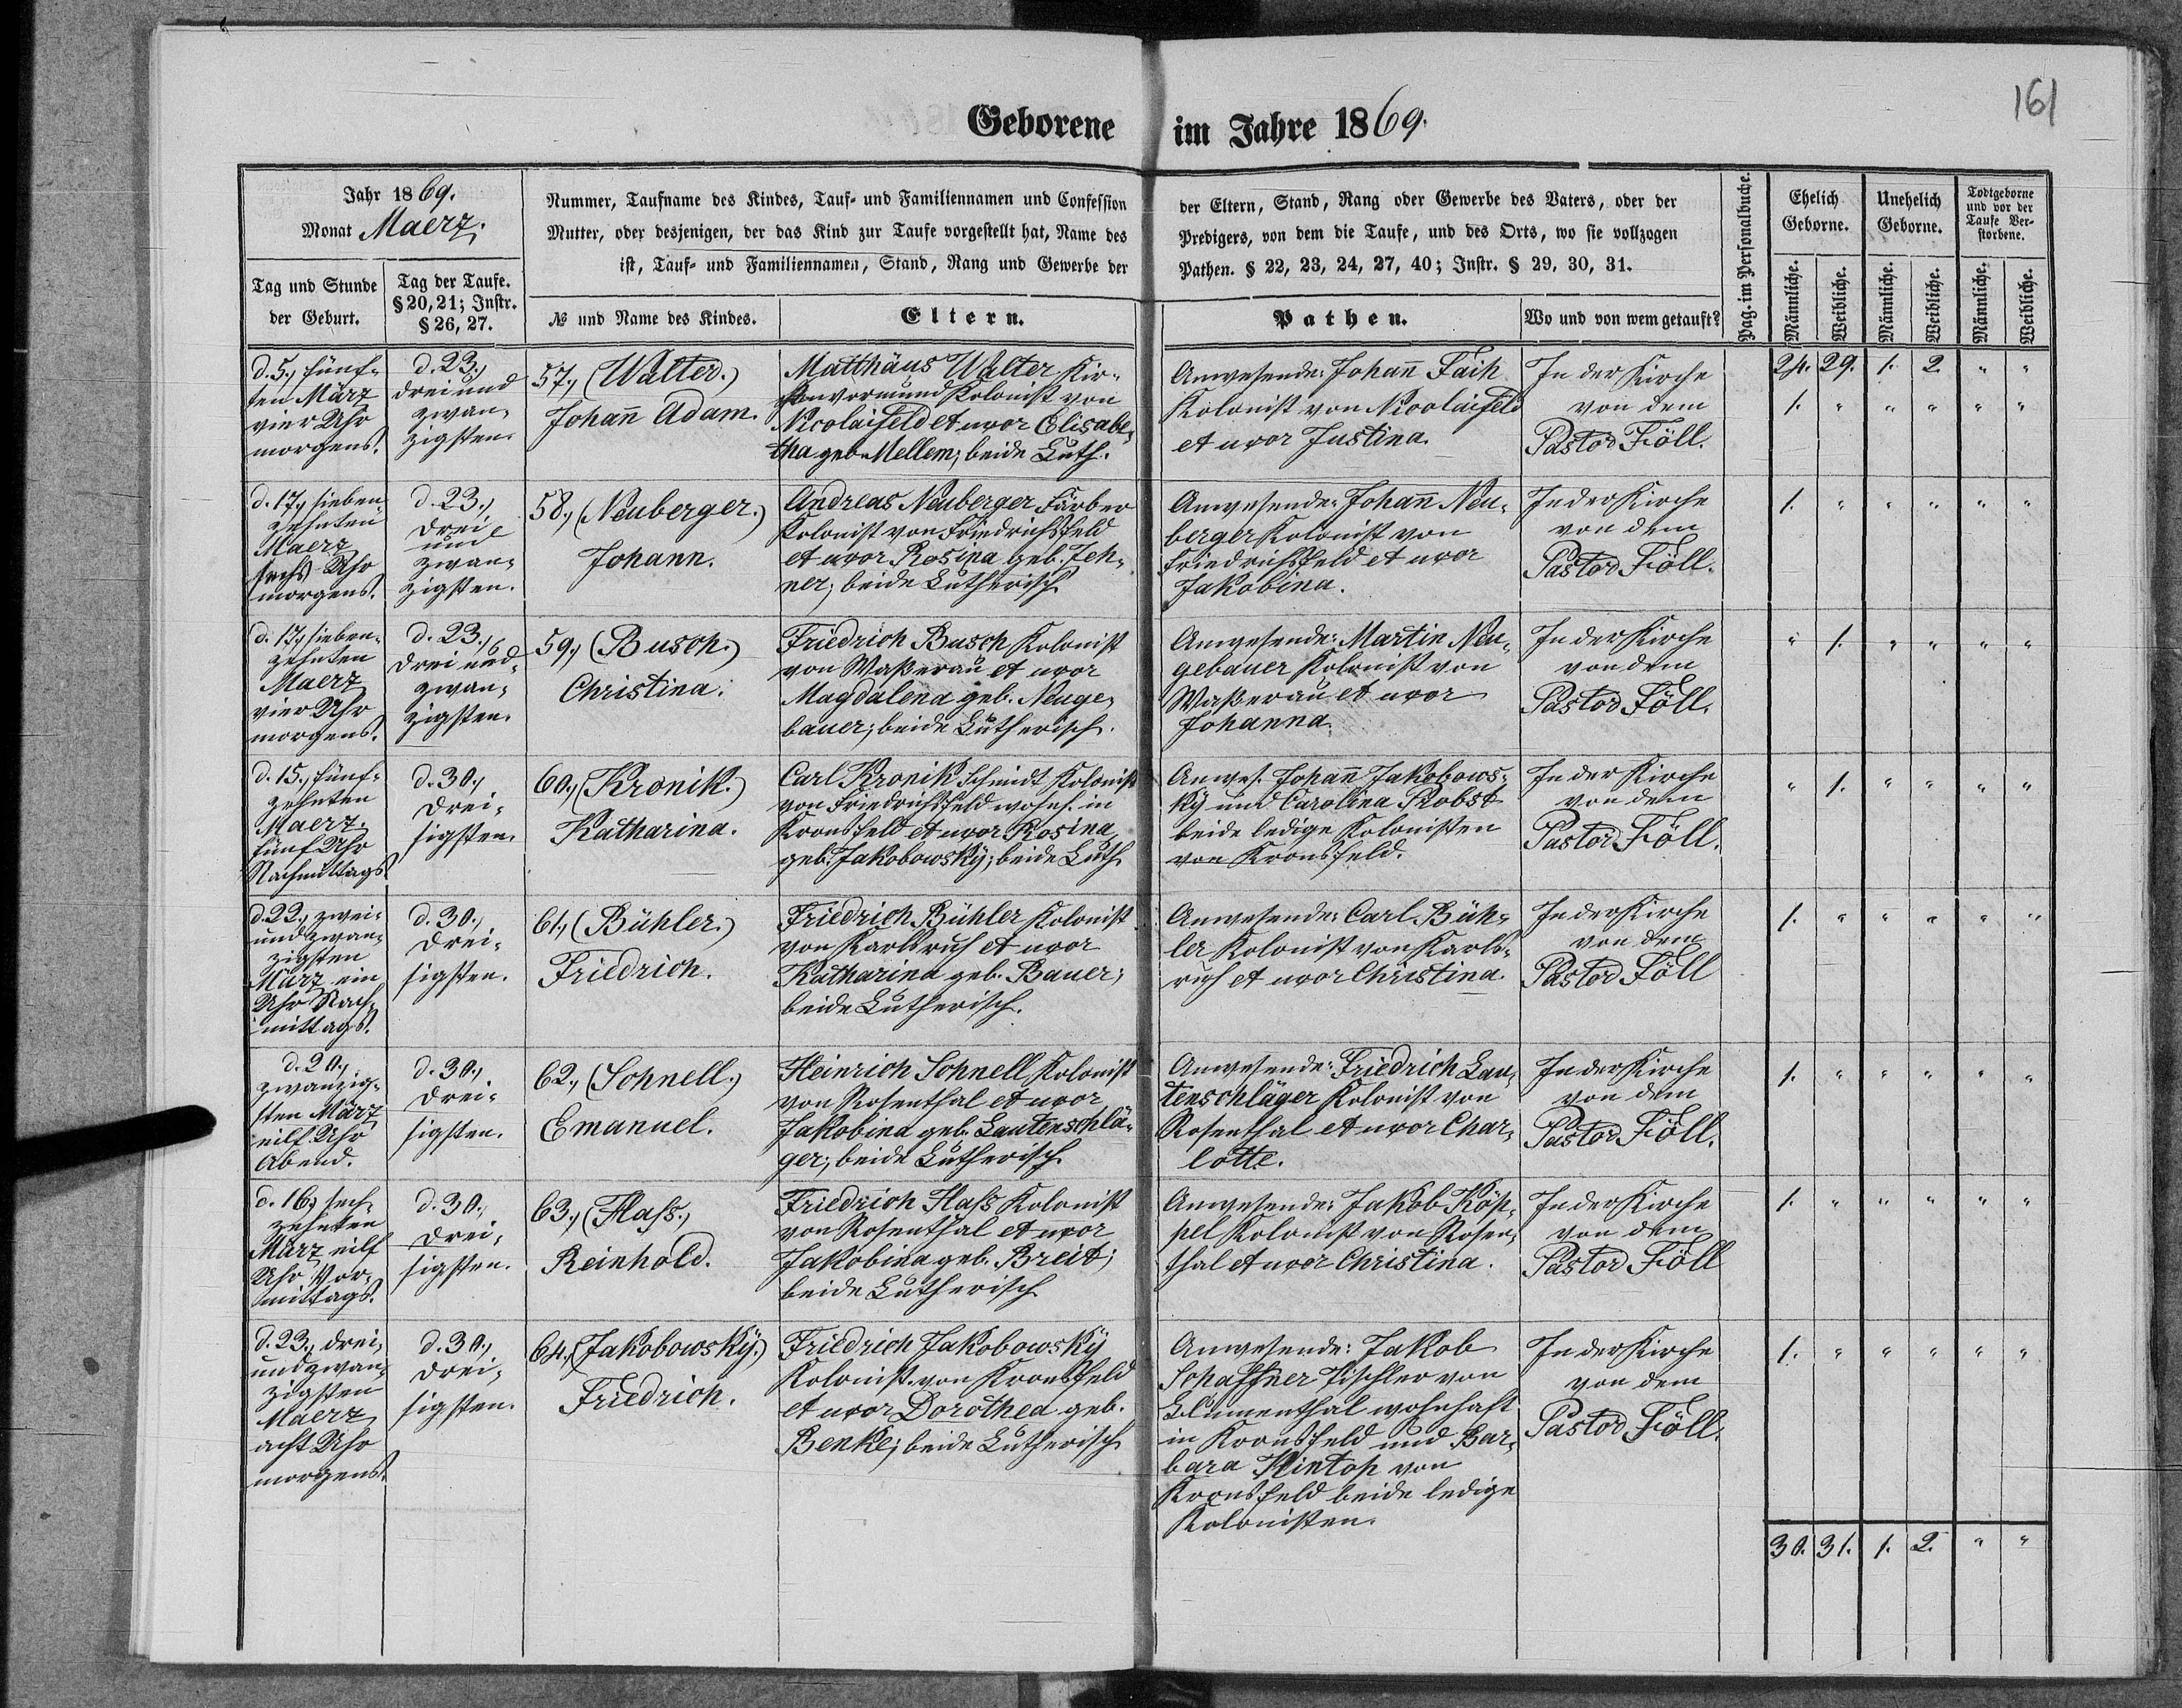 161
Geborene im Jahre 1869.
Jahr 1869.
Monat Maerz.
Tag und Stunde
der Geburt.
Tag der Taufe.
§ 20, 21; Instr.
§ 26, 27.
Nummer, Taufname des Kindes, Tauf- und Familiennamen und Confession
Mutter, oder desjenigen, der das Kind zur Taufe vorgestellt hat, Name des
ist, Tauf- und Familiennamen, Stand, Rang und Gewerbe der
№ und Name des Kindes.
Eltern.
der Eltern, Stand, Rang oder Gewerbe des Vaters, oder der
Predigers, von dem die Taufe, und des Orts, wo sie vollzogen
Pathen. § 22, 23, 24, 27, 40; Instr. § 29, 30, 31.
Pathen.
Wo und von wem getauft?
Pag. im Personalbuche.
Ehelich
Geborne.
Unehelich
Geborne.
Todtgeborne
und vor der
Taufe Ver-
storbene.
Männliche.
Weibliche.
Männliche.
Weibliche.
Männliche.
Weibliche.
d. 5., fünf-
ten März
vier Uhr
morgens.
d. 23.,
drei und
zwan-
zigsten.
57., (Walter.)
Johan̄ Adam.
Matthäus Walter Kir-
chenvormund Kolonist von
Nicolaifeld et uxor Elisabe-
tha geb. Mellem; beide Luth.
Anwesende: Johan̄ Faih
Kolonist von Nicolaifeld
et uxor Justina.
In der Kirche
von dem
Pastor Föll.
24. 29. 1. 2. " "
1. " " " " "
d. 17., sieben-
zehnten
Maerz
sechs Uhr
morgens.
d. 23.,
drei
und
zwan-
zigsten.
58., (Neuberger.)
Johann.
Andreas Neuberger Färber
Kolonist von Friedrichsfeld
et uxor Rosina geb. Zeh-
ner; beide Lutherisch
Anwesende: Johan̄ Neu-
berger Kolonist von
Friedrichsfeld et uxor
Jakobina.
In der Kirche
von dem
Pastor Föll.
1. " " " " "
d. 17., sieben-
zehnten
Maerz
vier Uhr
morgens.
d. 23.,
drei und
zwan-
zigsten.
59., (Busch.)
Christina.
Friedrich Busch Kolonist
von Waßerau et uxor
Magdalena geb. Neuge-
bauer; beide Lutherisch.
Anwesende: Martin Neu-
gebauer Kolonist von
Waßerau et uxor
Johanna.
In der Kirche
von dem
Pastor Föll.
" 1. " " " "
d. 15., fünf-
zehnten
Maerz.
fünf Uhr
Nachmittags
d. 30.,
drei-
sigsten.
60., (Kronik.)
Katharina.
Carl Kronik Schmidt Kolonist
von Friedrichsfeld wohnh. in
Kronsfeld et uxor Rosina
geb. Jakobowskÿ; beide Luth
Anwes. Johan̄ Jakobows-
kÿ und Carolina Probst
beide ledige Kolonisten
von Kronsfeld.
In der Kirche
von dem
Pastor Föll.
" 1. " " " "
d. 22., zwei-
und zwan-
zigsten
März ein
Uhr Nach-
mittags.
d. 30.,
drei-
sigsten.
61., (Bühler.)
Friedrich.
Friedrich Bühler Kolonist
von Karlsruh et uxor
Katharina geb. Bauer;
beide Lutherisch.
Anwesende: Carl Büh-
ler Kolonist von Karls-
ruh et uxor Christina.
In der Kirche
von dem
Pastor Föll
1. " " " " "
d. 20.,
zwanzig-
sten März
eilf Uhr
Abend.
d. 30.,
drei-
sigsten.
62., (Schnell.)
Emanuel.
Heinrich Schnell Kolonist
von Rosenthal et uxor
Jakobina geb. Lautenschlä-
ger; beide Lutherisch
Anwesende: Friedrich Lau-
tenschläger Kolonist von
Rosenthal et uxor Char-
lotte.
In der Kirche
von dem
Pastor Föll.
1. " " " " "
d. 16., sech-
zehnten
März eilf
Uhr Vor-
mittags.
d. 30.,
drei-
sigsten.
63., (Haß.)
Reinhold.
Friedrich Haß Kolonist
von Rosenthal et uxor
Jakobina geb. Breit;
beide Lutherisch
Anwesende: Jakob Köp-
pel Kolonist von Rosen-
thal et uxor Christina.
In der Kirche
von dem
Pastor Föll
1. " " " " "
d. 23., drei-
und zwan-
zigsten
Maerz
acht Uhr
morgens.
d. 30.,
drei-
sigsten.
64., (Jakobowskÿ.)
Friedrich.
Friedrich Jakobowskÿ
Kolonist von Kronsfeld
et uxor Dorothea geb.
Benke; beide Lutherisch
Anwesende: Jakob
Schaffner Tischler von
Blumenthal wohnhaft
in Kronsfeld und Bar-
bara Kintop von
Kronsfeld beide ledige
Kolonisten.
In der Kirche
von dem
Pastor Föll.
1. " " " " "
30. 31. 1. 2. " "